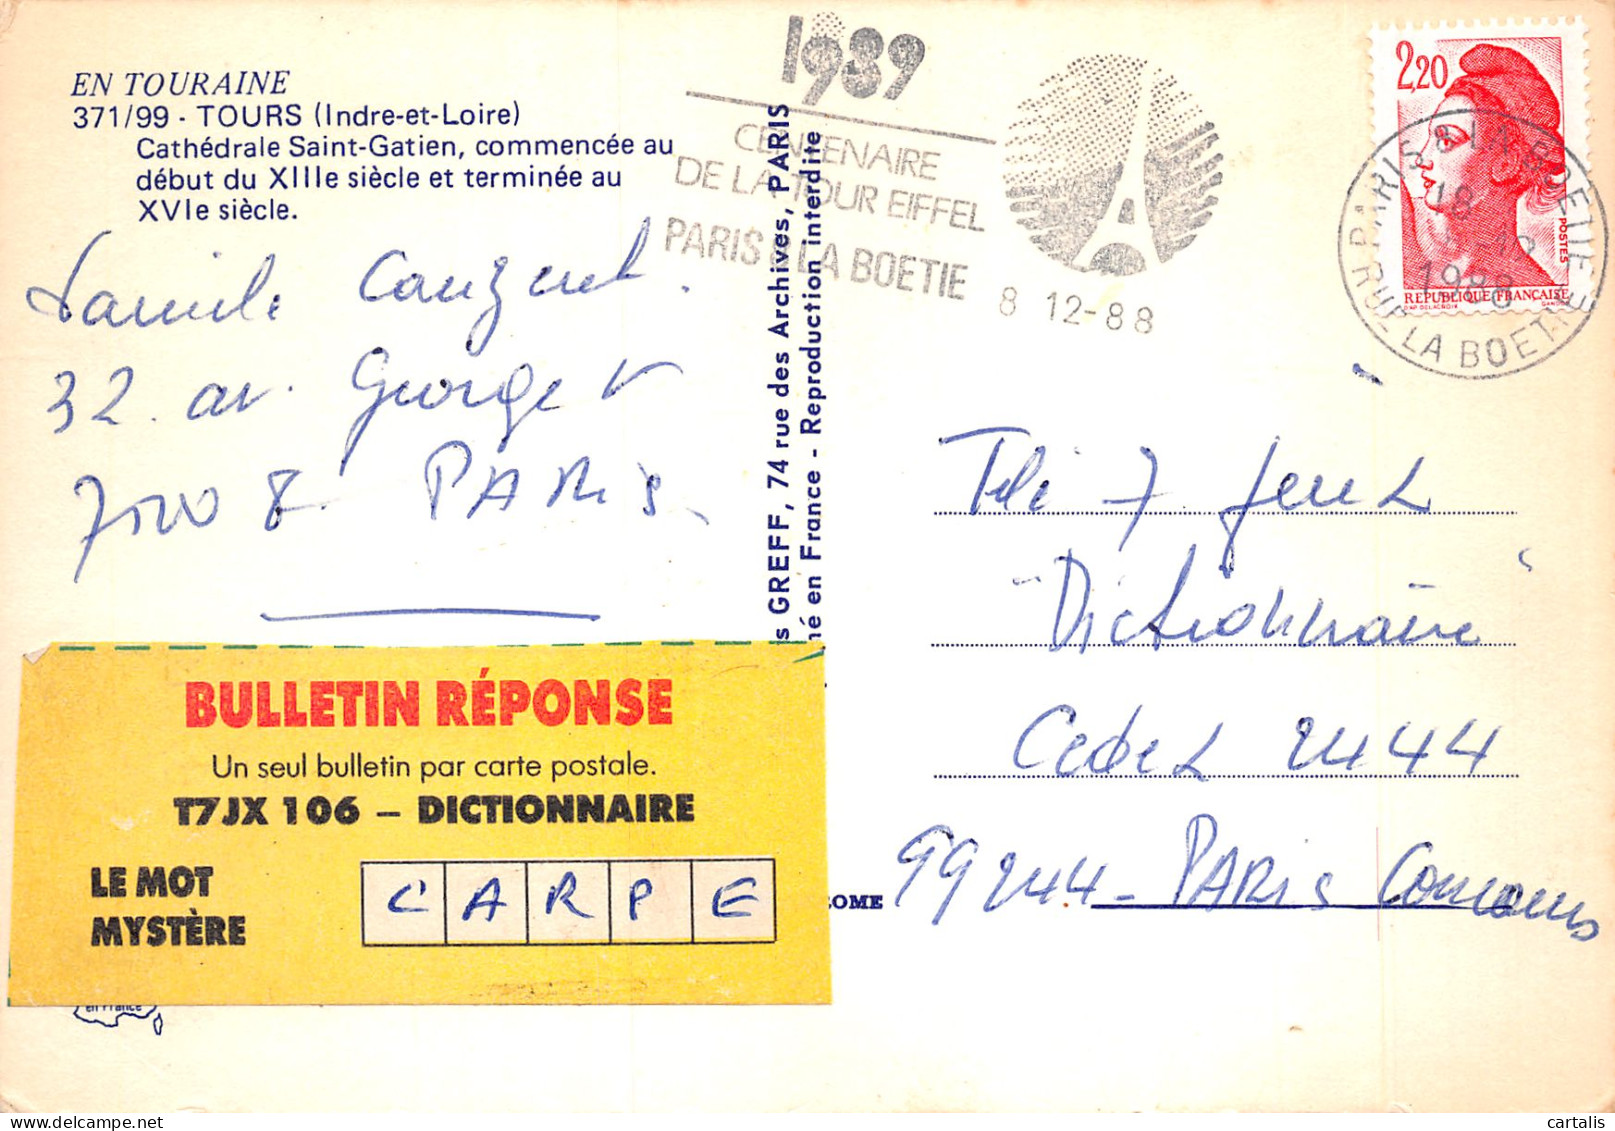 EN TOURAINE
371/99 - TOURS (Indre-et-Loire)
Cathédrale Saint-Gatien, commencée au
début du XIIIe siècle et terminée au
XVIe siècle.
32. av. George V
75008 PARIS
BULLETIN RÉPONSE
Un seul bulletin par carte postale.
T7JX 106 – DICTIONNAIRE
LE MOT
MYSTÈRE
C A R P E
en France
s GREFF, 74 rue des Archives, PARIS
né en France - Reproduction interdite
LOME
1989
CENTENAIRE
DE LA TOUR EIFFEL
PARIS 8 LA BOETIE
8 12-88
2,20
POSTES
REPUBLIQUE FRANÇAISE
PARIS 8 LA BOETIE
18
1988
RUE LA BOETIE
Télé 7 Jeux
"Dictionnaire"
Cedex 2444
99244 - PARIS Concours
cartalis